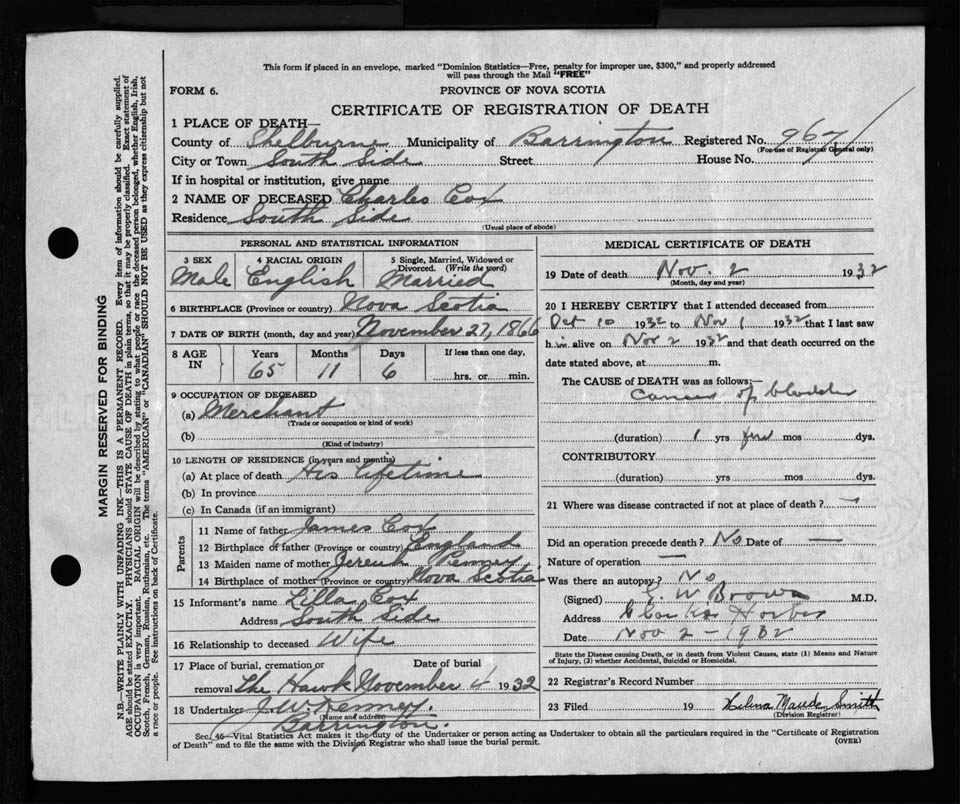 This form if placed in an envelope, marked "Dominion Statistics—Free, penalty for improper use, $300," and properly addressed
will pass through the Mail "FREE"
FORM 6.
PROVINCE OF NOVA SCOTIA
CERTIFICATE OF REGISTRATION OF DEATH
1 PLACE OF DEATH—
County of Shelburne Municipality of Barrington Registered No. 967
(For use of Registrar General only)
City or Town South Side Street House No.
If in hospital or institution, give name
2 NAME OF DECEASED Charles Cox
Residence South Side
(Usual place of abode)
PERSONAL AND STATISTICAL INFORMATION
3 SEX 4 RACIAL ORIGIN 5 Single, Married, Widowed or
Divorced. (Write the word)
Male English Married
6 BIRTHPLACE (Province or country) Nova Scotia
7 DATE OF BIRTH (month, day and year) November 27, 1866
8 AGE IN Years Months Days If less than one day,
65 11 6 hrs. or min.
9 OCCUPATION OF DECEASED
(a) Merchant
(Trade or occupation or kind of work)
(b)
(Kind of industry)
10 LENGTH OF RESIDENCE (in years and months)
(a) At place of death His lifetime
(b) In province
(c) In Canada (if an immigrant)
Parents
11 Name of father James Cox
12 Birthplace of father (Province or country) England
13 Maiden name of mother
14 Birthplace of mother (Province or country) Nova Scotia
15 Informant's name Lilla Cox
Address South Side
16 Relationship to deceased Wife
17 Place of burial, cremation or Date of burial
removal The Hawk November 4 1932
18 Undertaker J. W. Kenney.
(Name and address)
Barrington.
MEDICAL CERTIFICATE OF DEATH
19 Date of death Nov. 2 1932
(Month, day and year)
20 I HEREBY CERTIFY that I attended deceased from
Oct 10 1932 to Nov 1 1932 that I last saw
him alive on Nov 2 1932 and that death occurred on the
date stated above, at m.
The CAUSE of DEATH was as follows:—
Cancer of bladder
(duration) 1 yrs mos dys.
CONTRIBUTORY
(duration) yrs mos dys.
21 Where was disease contracted if not at place of death? —
Did an operation precede death? No Date of —
Nature of operation —
Was there an autopsy? No
(Signed) Brown M.D.
Address Clarks Harbor
Date Nov 2 - 1932
State the Disease causing Death, or in death from Violent Causes, state (1) Means and Nature
of Injury, (2) whether Accidental, Suicidal or Homicidal.
22 Registrar's Record Number
23 Filed 19 Maude Smith
(Division Registrar)
Sec. 46—Vital Statistics Act makes it the duty of the Undertaker or person acting as Undertaker to obtain all the particulars required in the "Certificate of Registration
of Death" and to file the same with the Division Registrar who shall issue the burial permit.
(OVER)
MARGIN RESERVED FOR BINDING
N.B.—WRITE PLAINLY WITH UNFADING INK—THIS IS A PERMANENT RECORD. Every item of information should be carefully supplied.
AGE should be stated EXACTLY. PHYSICIANS should STATE CAUSE OF DEATH in plain terms, so that it may be properly classified. Exact statement of
OCCUPATION is very important. RACIAL ORIGIN will be described by stating to what people or race the deceased person belonged, whether English, Irish,
Scotch, French, German, Russian, Ruthenian, etc. The terms "AMERICAN" or "CANADIAN" SHOULD NOT BE USED as they express citizenship but not
a race or people. See instructions on back of Certificate.